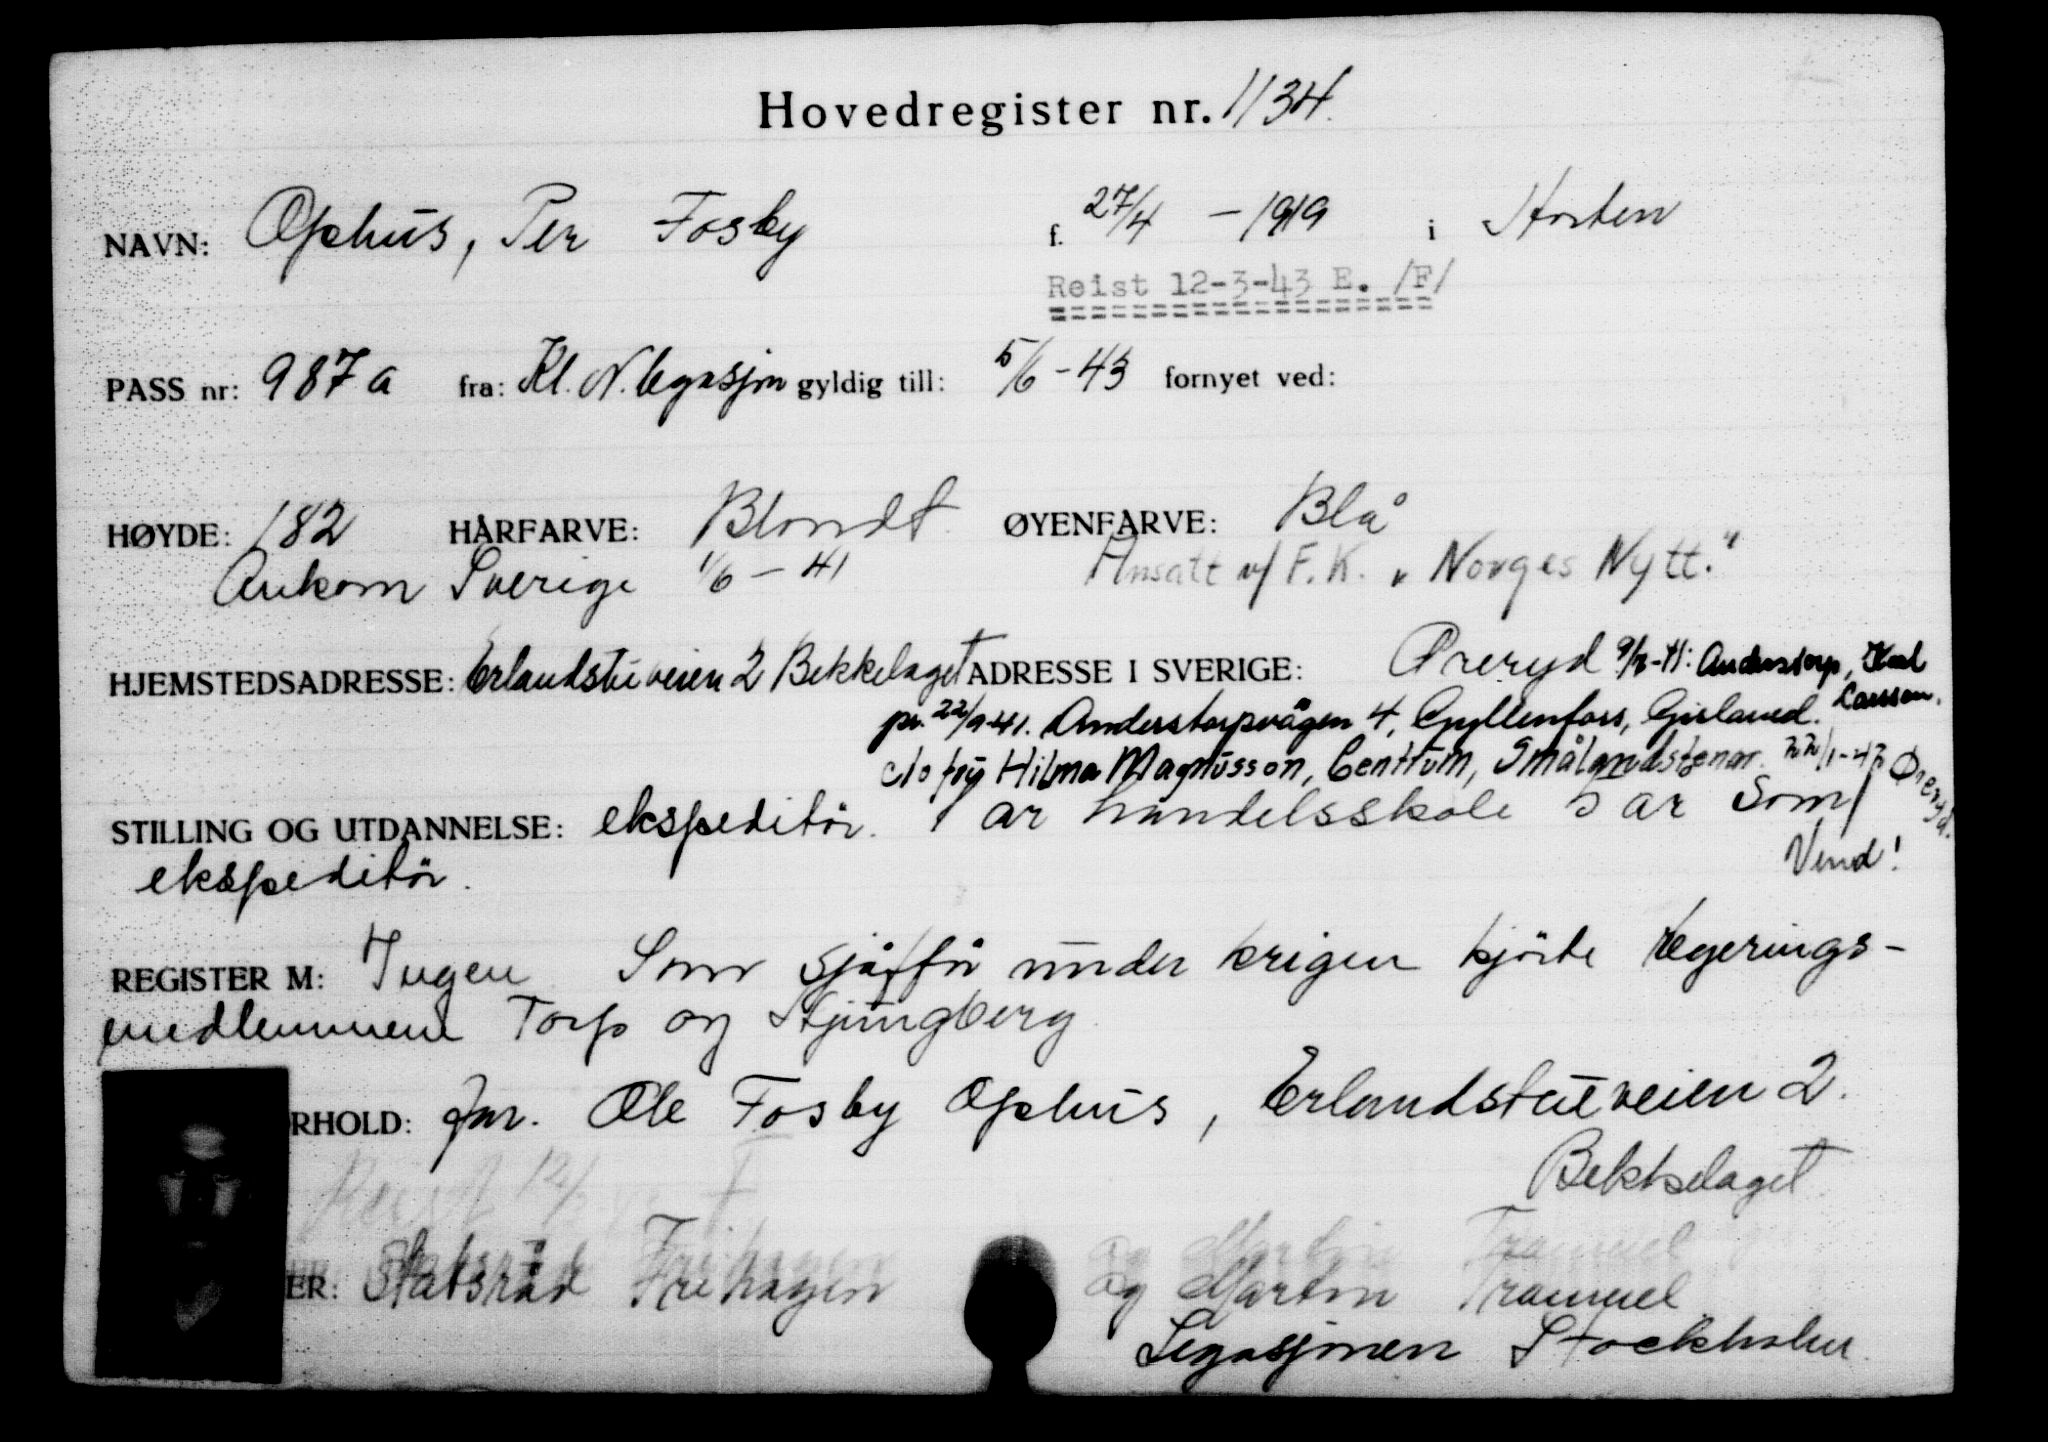 Hovedregister nr. 1134.
NAVN: Ophus, Per Fosby f. 27/4 - 1919 i Horten
Reist 12-3-43 E. /F/
PASS nr: 987 a fra: Kl. N. legasjon gyldig till: 5/6 - 43 fornyet ved:
HØYDE: 182 HÅRFARVE: Blondt ØYENFARVE: Blå
Ankom Sverige 1/6 - 41 Ansatt v/ F.K. "Norges Nytt."
HJEMSTEDSADRESSE: Erlandstuveien 2 Bekkelaget ADRESSE I SVERIGE: Øreryd 9/7-41: Anderstorp, Karl Larsson.
pr. 22/9-41. Anderstorpvägen 4, Gyllenfors, Gislaved.
c/o frü Hilma Magnusson, Centrum, Smålandstenar. 22/1-42 Øreryd.
STILLING OG UTDANNELSE: ekspeditör. 1 år handelsskole 5 år som
ekspeditör. Vend!
REGISTER M: Ingen Som sjåffør under krigen kjörte regjerings-
medlemmene Torp og Ljungberg
RHOLD: far. Ole Fosby Ophus, Erlandstuveien 2.
Bekkelaget
Reist 12/3 F
ER: Statsråd Frihagen og Martin Tranmæl
Legasjonen Stockholm